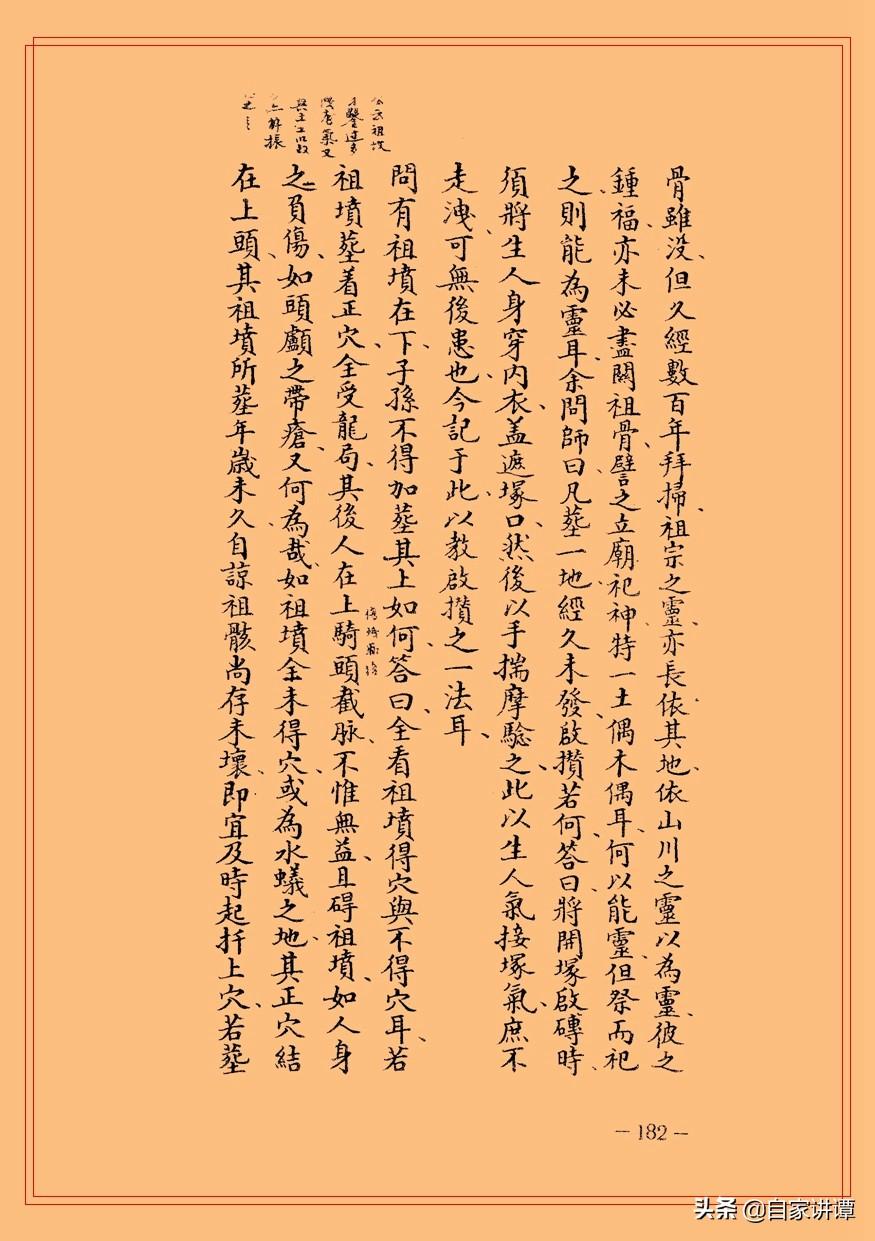 骨雖没、但久經數百年拜掃、祖宗之靈、亦長依其地、依山川之靈以為靈、彼之
鍾福、亦未必盡關祖骨、譬之立廟祀神、特一土偶木偶耳、何以能靈、但祭而祀
之、則能為靈耳、余問師曰、凡塟一地、經久未發、啟攢若何、答曰、將開塚啟磚時、
須將生人身穿內衣、盖遮塚口、然後以手揣摩騐之、此以生人氣接塚氣、庶不
走洩、可無後患也、今記于此、以教啟攢之一法耳、
問有祖墳在下、子孫不得加塟其上、如何、答曰、全看祖墳得穴與不得穴耳、若
祖墳塟着正穴、全受龍局、其後人在上騎頭截脉、不惟無益、且碍祖墳、如人身
之負傷、如頭顱之帶瘡、又何為哉、如祖墳全未得穴、或為水蟻之地、其正穴結
在上頭、其祖墳所塟年歲未久、自諒祖骸尚存未壞、即宜及時起扦上穴、若塟
－182－
头条 @自家讲谭